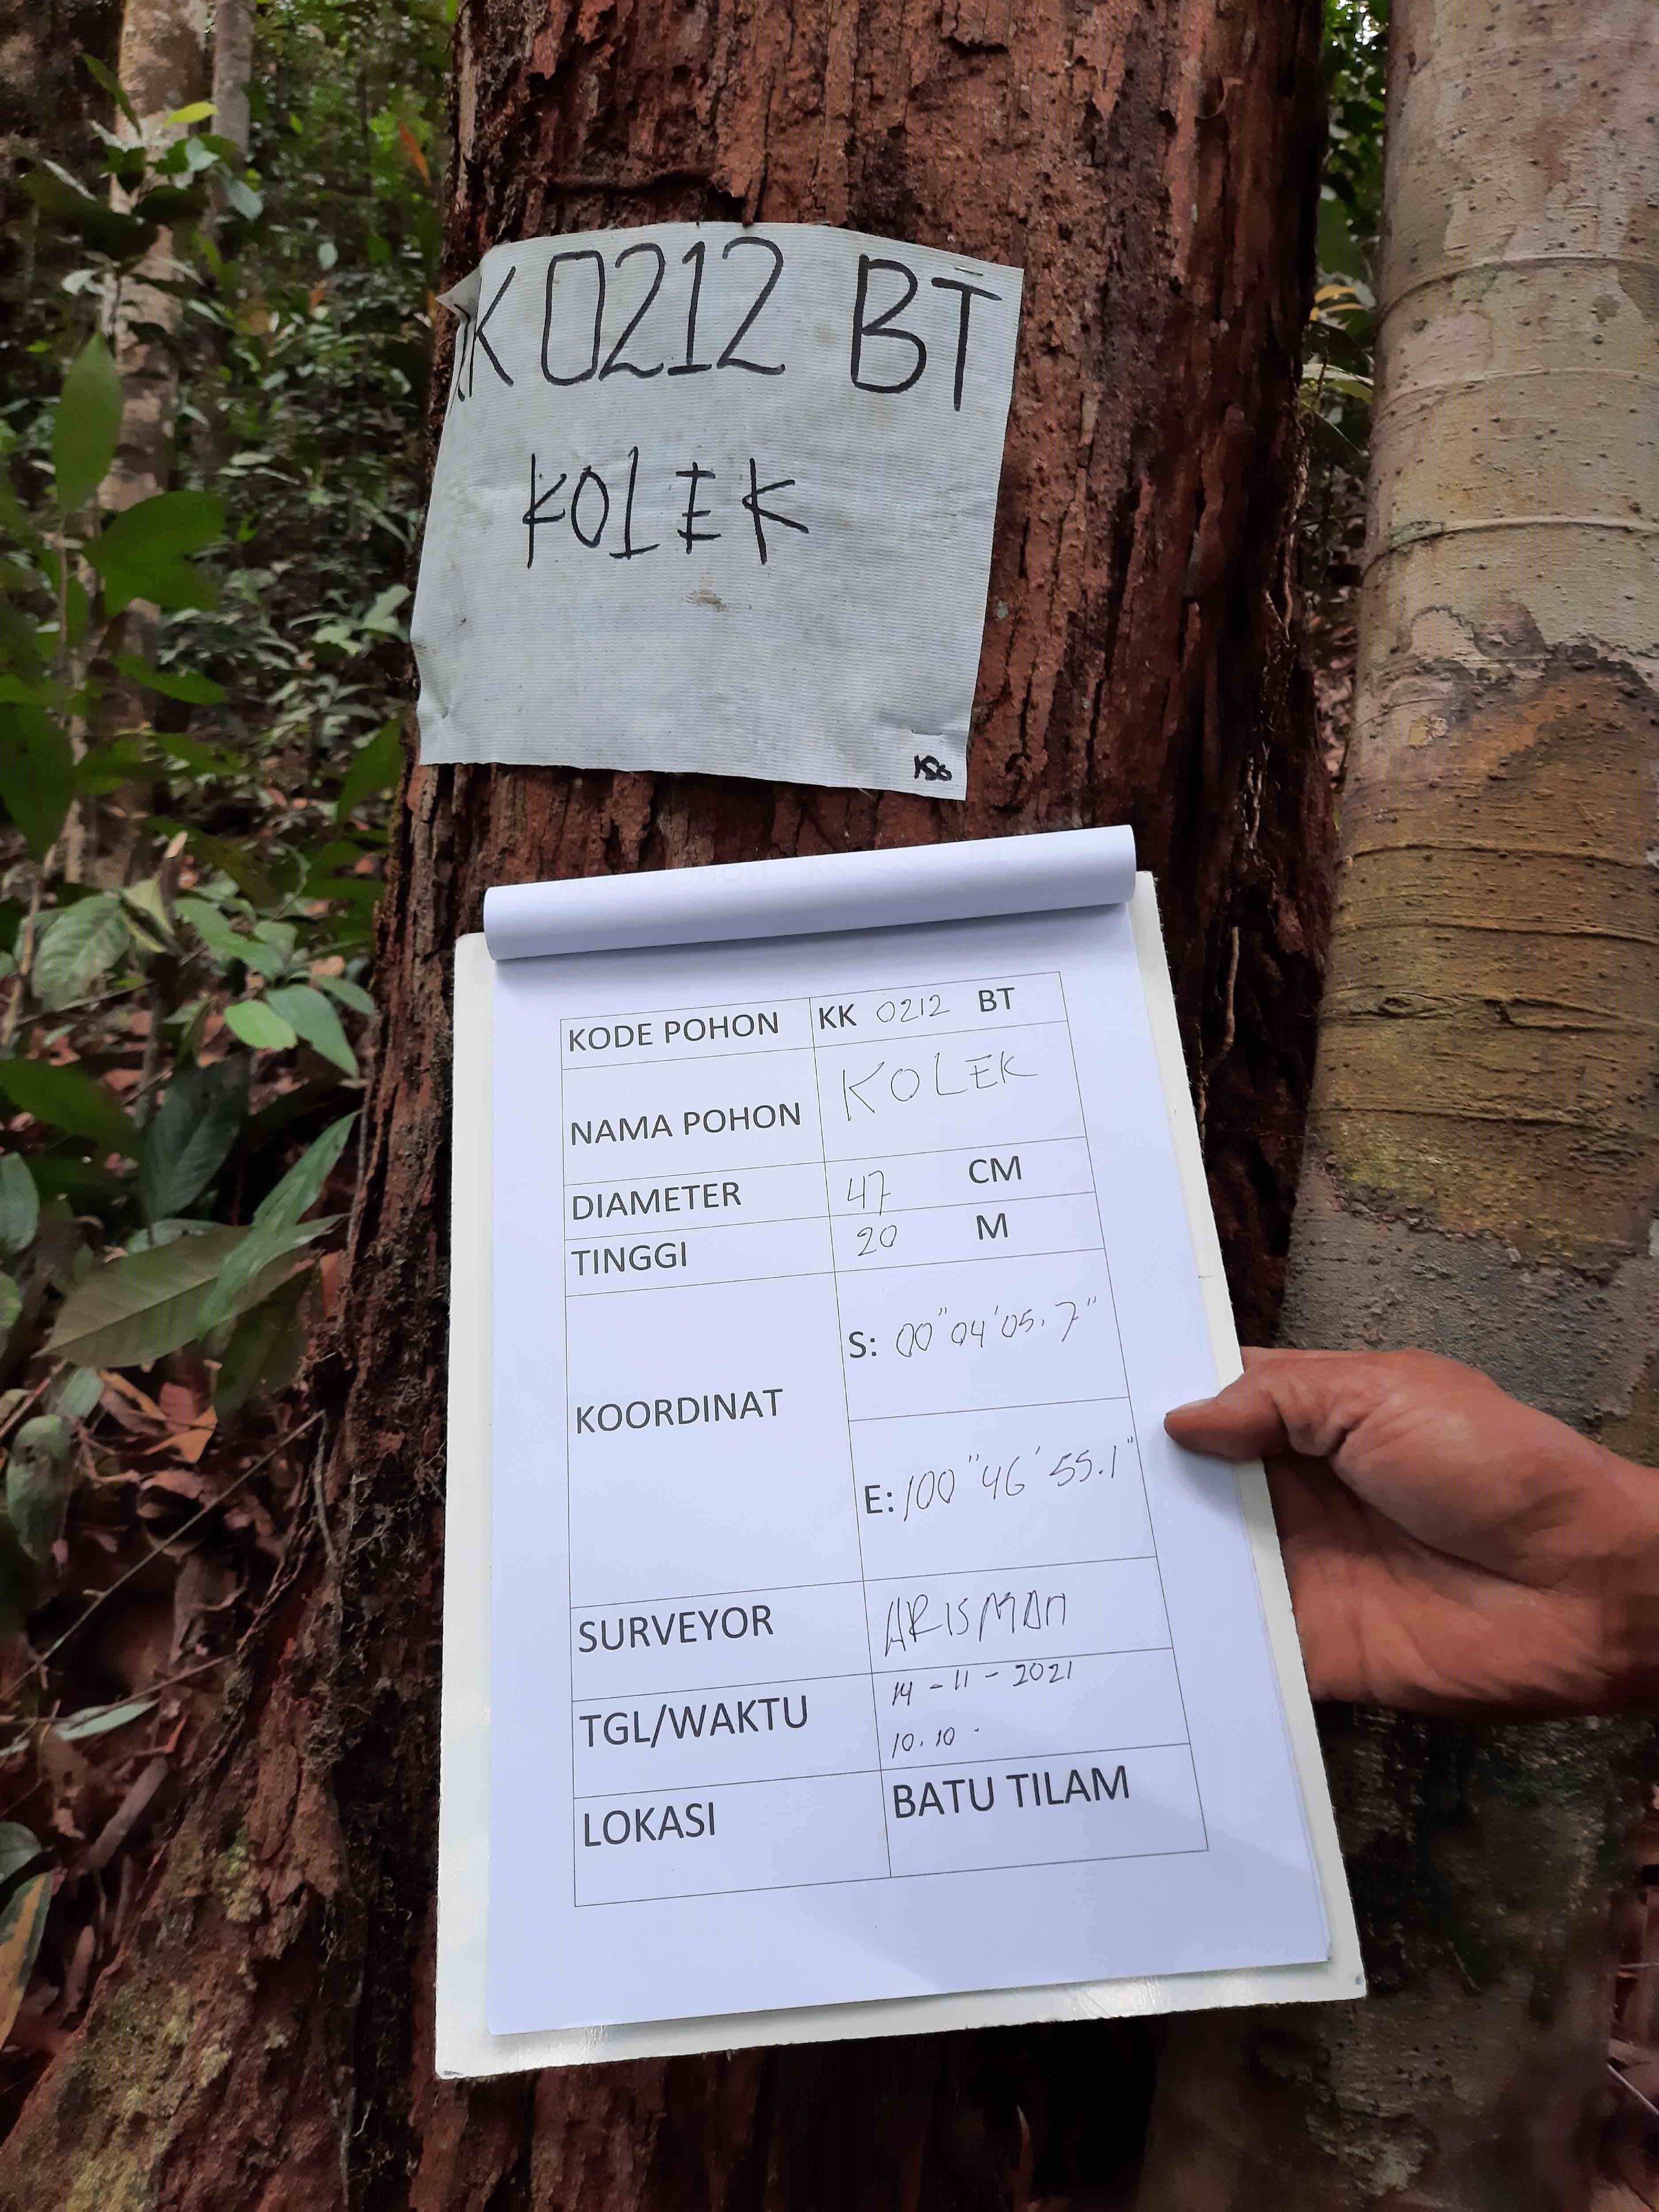 KK 0212 BT
KOLEK
KODE POHON KK 0212 BT
NAMA POHON KOLEK
DIAMETER 47 CM
TINGGI 20 M
KOORDINAT
S: 00" 04' 05.7"
E: 100" 46' 55.1"
SURVEYOR ARISMAN
TGL/WAKTU 14 - 11 - 2021
10.10
LOKASI BATU TILAM